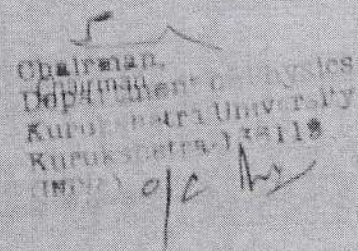 Chairman,
Chairman
Department of Physics
Kurukshetra University
Kurukshetra-136119
(INDIA) o/c